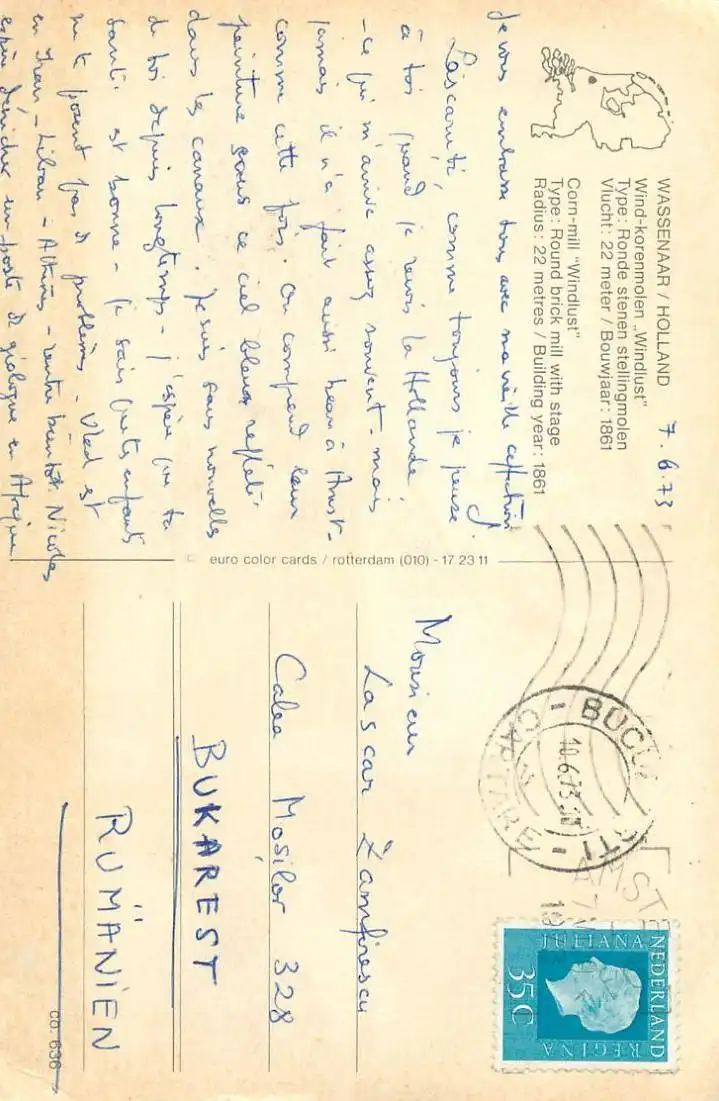 WASSENAAR / HOLLAND
Wind-korenmolen „Windlust"
Type: Ronde stenen stellingmolen
Vlucht: 22 meter / Bouwjaar: 1861
Corn-mill "Windlust"
Type: Round brick mill with stage
Radius: 22 metres / Building year: 1861
7.6.73
Je vous embrasse tous avec ma vieille affection
Lascaruță, comme toujours je pense
à toi quand je revois la Hollande
- ce qui m'arrive assez souvent - mais
jamais il n'a fait aussi beau à Amst-
comme cette fois. On comprend leur
peinture sous ce ciel bleu reflété
dans les canaux. Je suis sans nouvelles
de toi depuis longtemps - j'espère que ta
santé est bonne - je sais que tes enfants
ne te posent pas de problèmes - Vlad est
en Iran - Liban - Athènes - rentre bientôt. Nicolas
espère dénicher un poste de géologue en Afrique
© euro color cards / rotterdam (010) - 17 23 11
Monsieur
Lascar Zamfirescu
Calea Moșilor 328
BUKAREST
RUMÄNIEN
co. 636
BUCUREȘTI
CARTARE
10.6.73
AMST
NEDERLAND
JULIANA
REGINA
35C